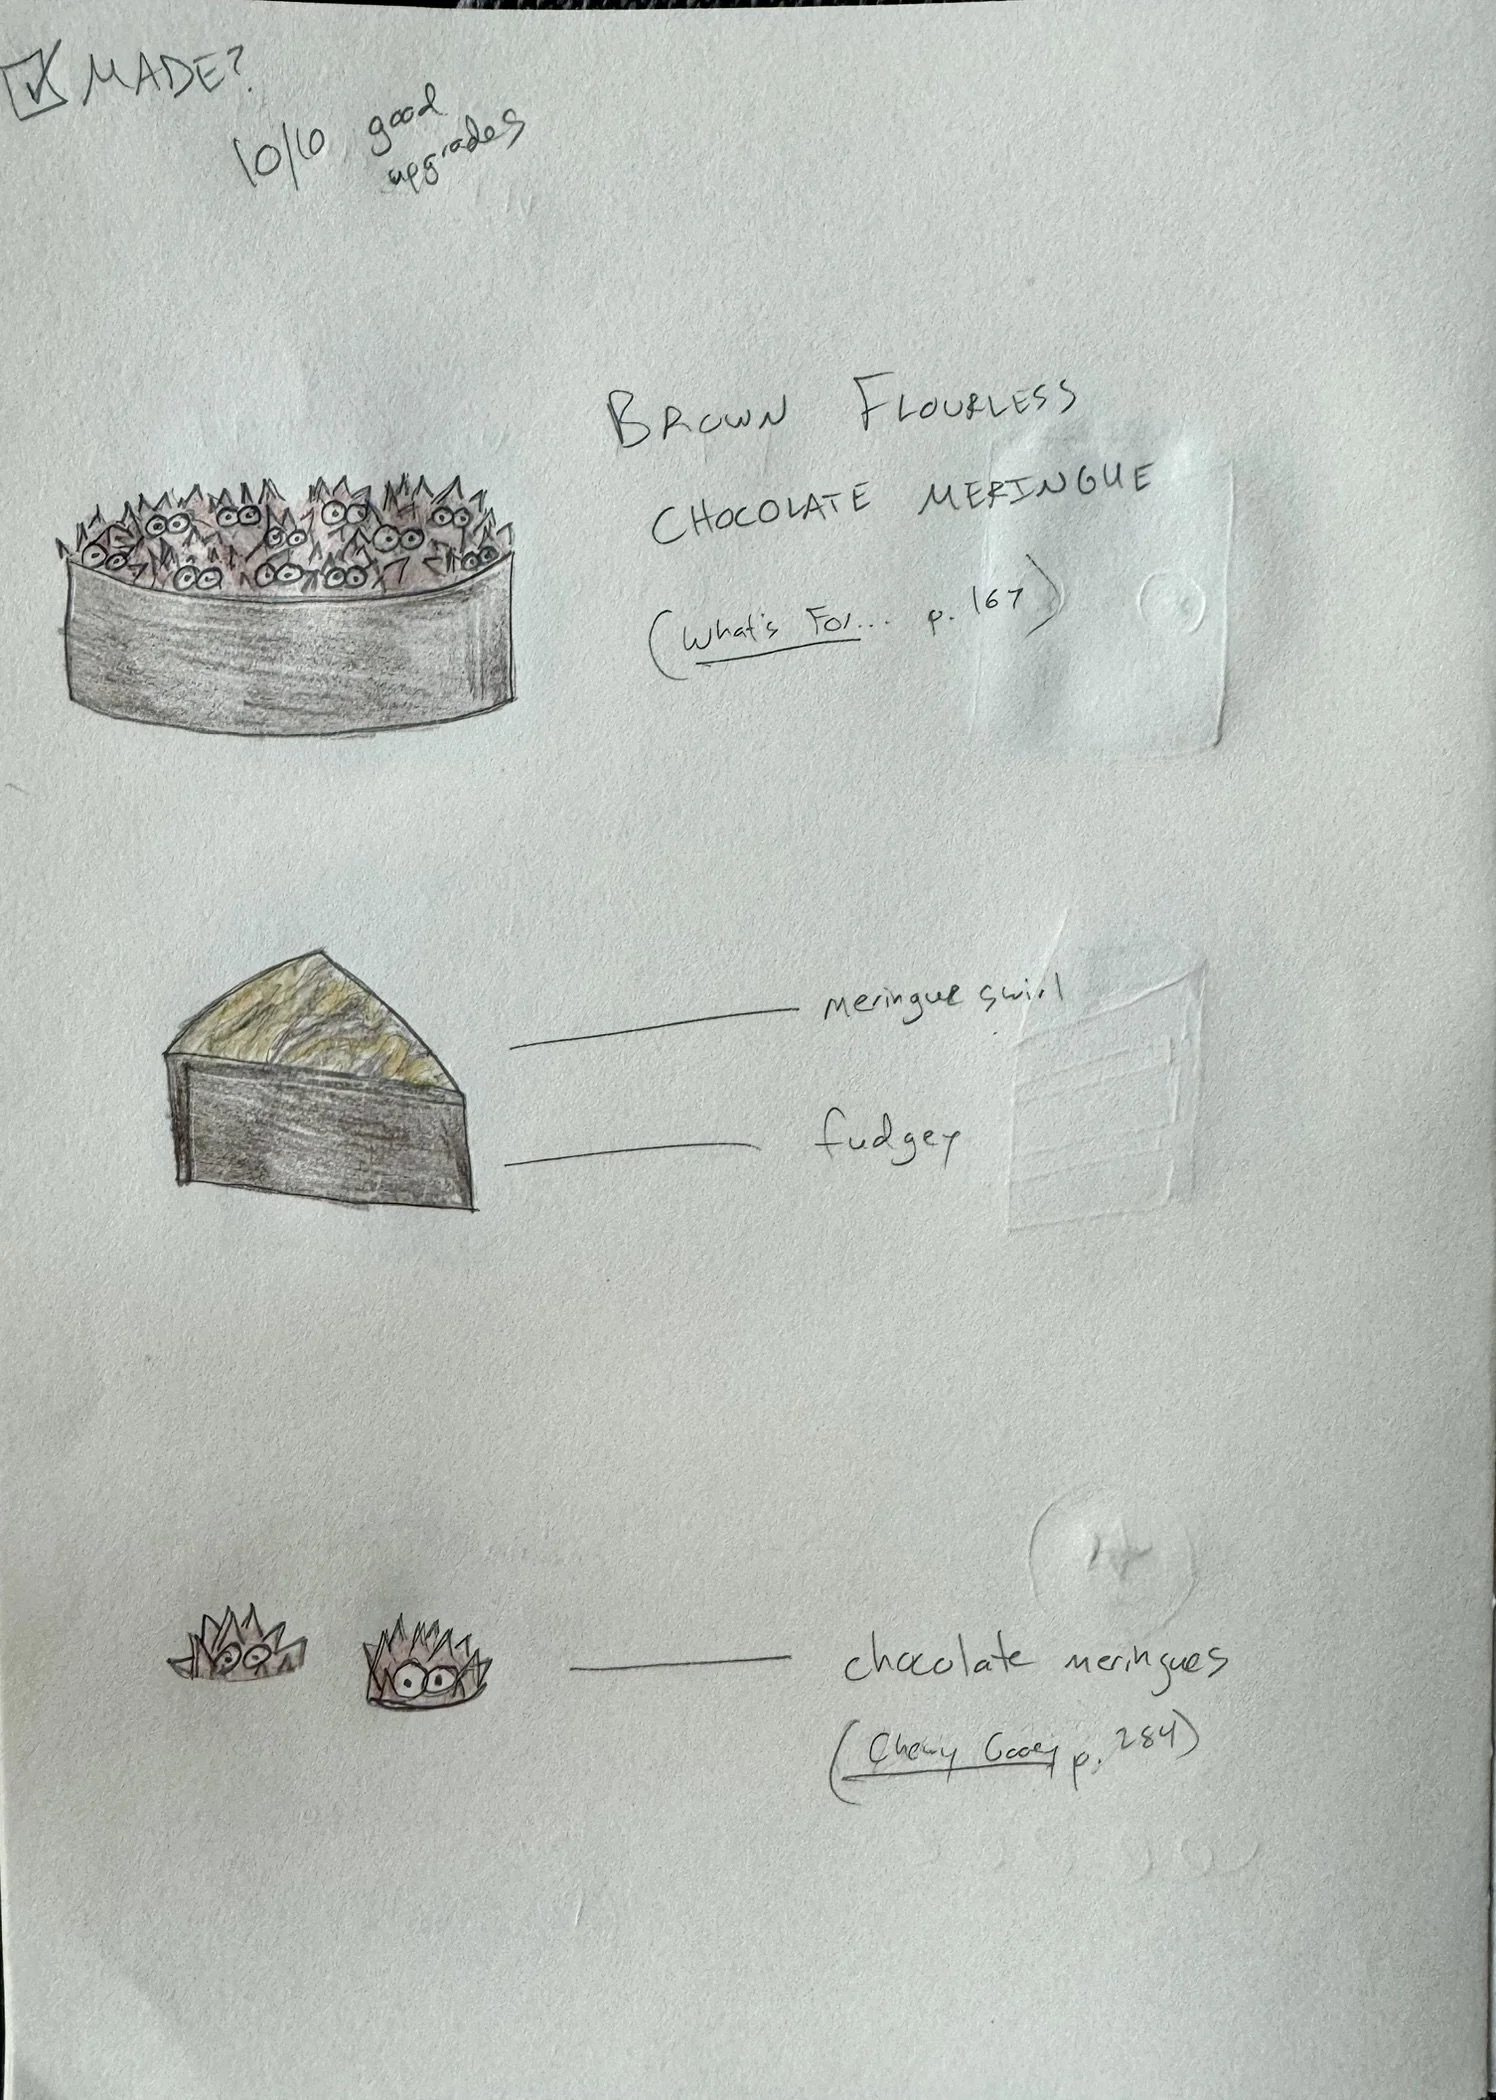 MADE?
10/10 good
upgrades
BROWN FLOURLESS
CHOCOLATE MERINGUE
(What's For... p. 167)
meringue swirl
fudgey
chocolate meringues
(Chewy Gooey p. 284)